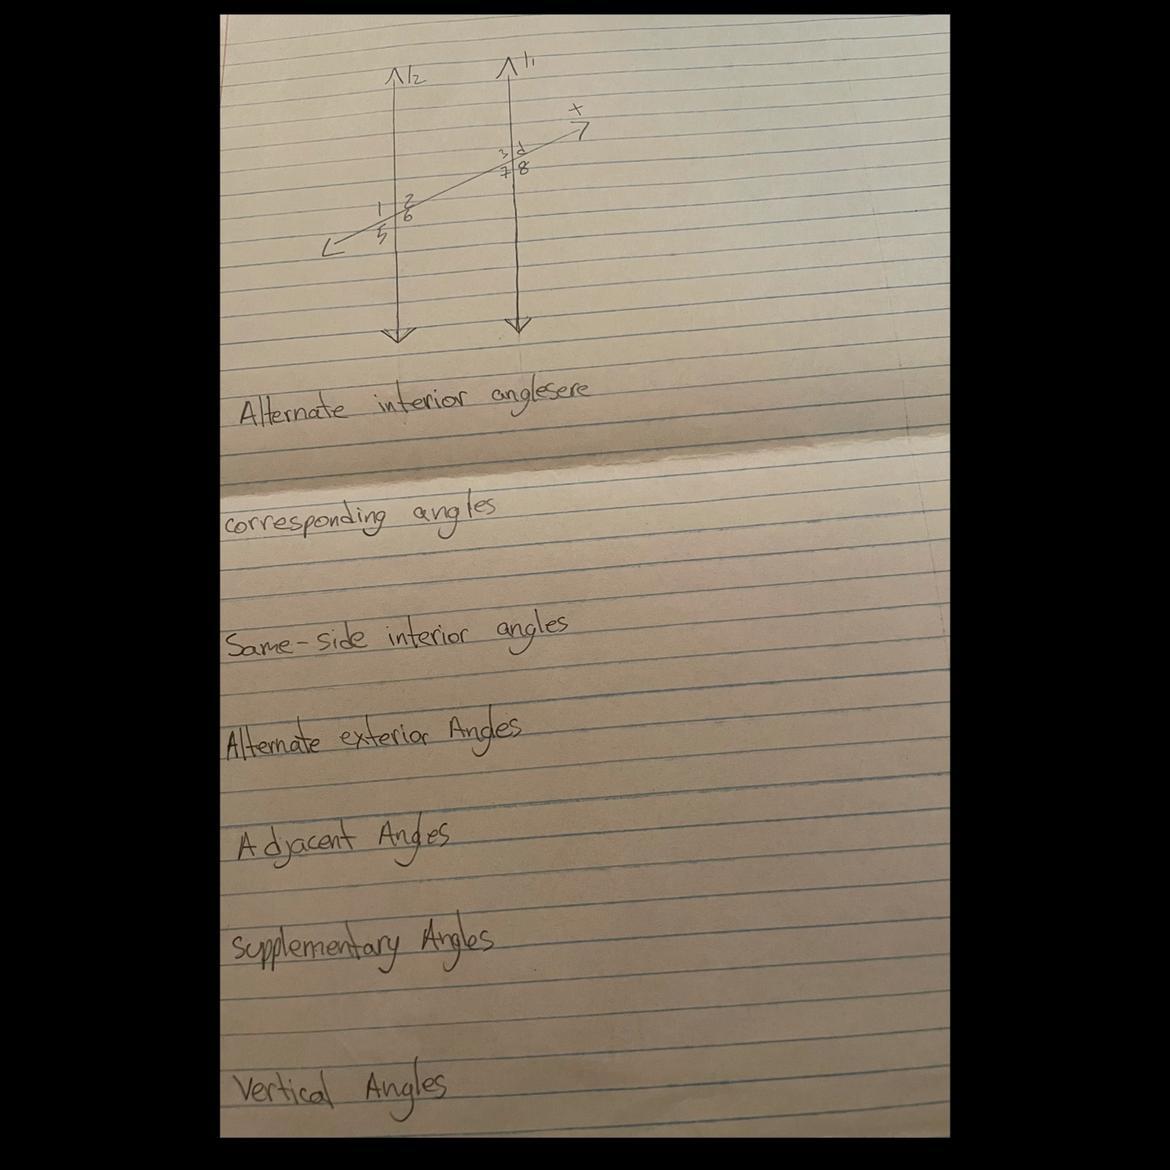 l2 l1
t
3 d
7 8
1 2
5 6
Alternate interior anglesere
corresponding angles
Same-side interior angles
Alternate exterior Angles
Adjacent Angles
Supplementary Angles
Vertical Angles